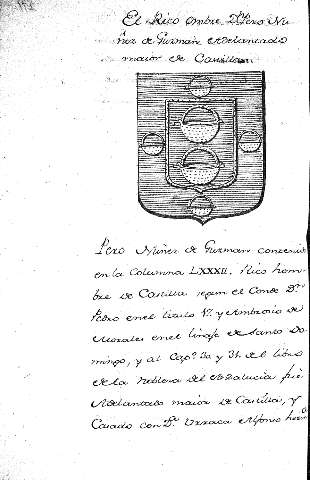 El Rico ombre Dn. Pero Nu
ñez de Guzman Adelantado
maior de Castilla
Pero Nuñez de Guzman contenido
en la Columna LXXXII. Rico hom-
bre de Castilla segun el Conde Dn.
Pedro en el titulo 17. y Ambrosio de
Morales en el linaje de Santo Do
mingo, y al Capo. 30 y 31 del libro
de la Nobleza del Andalucia fue
Adelantado maior de Castilla, y
Casado con Da. Urraca Alfonso herma